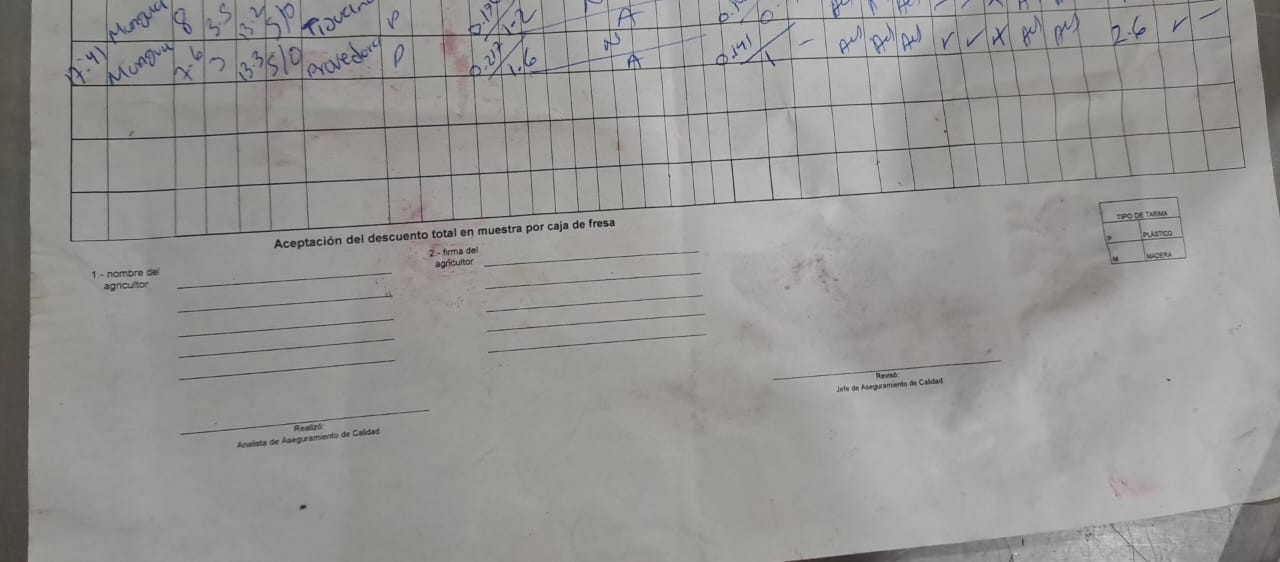 Munguia 8 3.5 13.2 S/O P 0.174/1.2 A
17:41 Munguia 7.6 3 13.3 S/O Proveedora P 0.27/1.6 N A 0.141/1 - Aus Aus Aus ✓ ✓ X Aus Aus 2.6 ✓ -
Aceptación del descuento total en muestra por caja de fresa
1.- nombre del
agricultor
2.- firma del
agricultor
TIPO DE TARIMA
P PLÁSTICO
M MADERA
Revisó:
Jefe de Aseguramiento de Calidad
Realizó:
Analista de Aseguramiento de Calidad